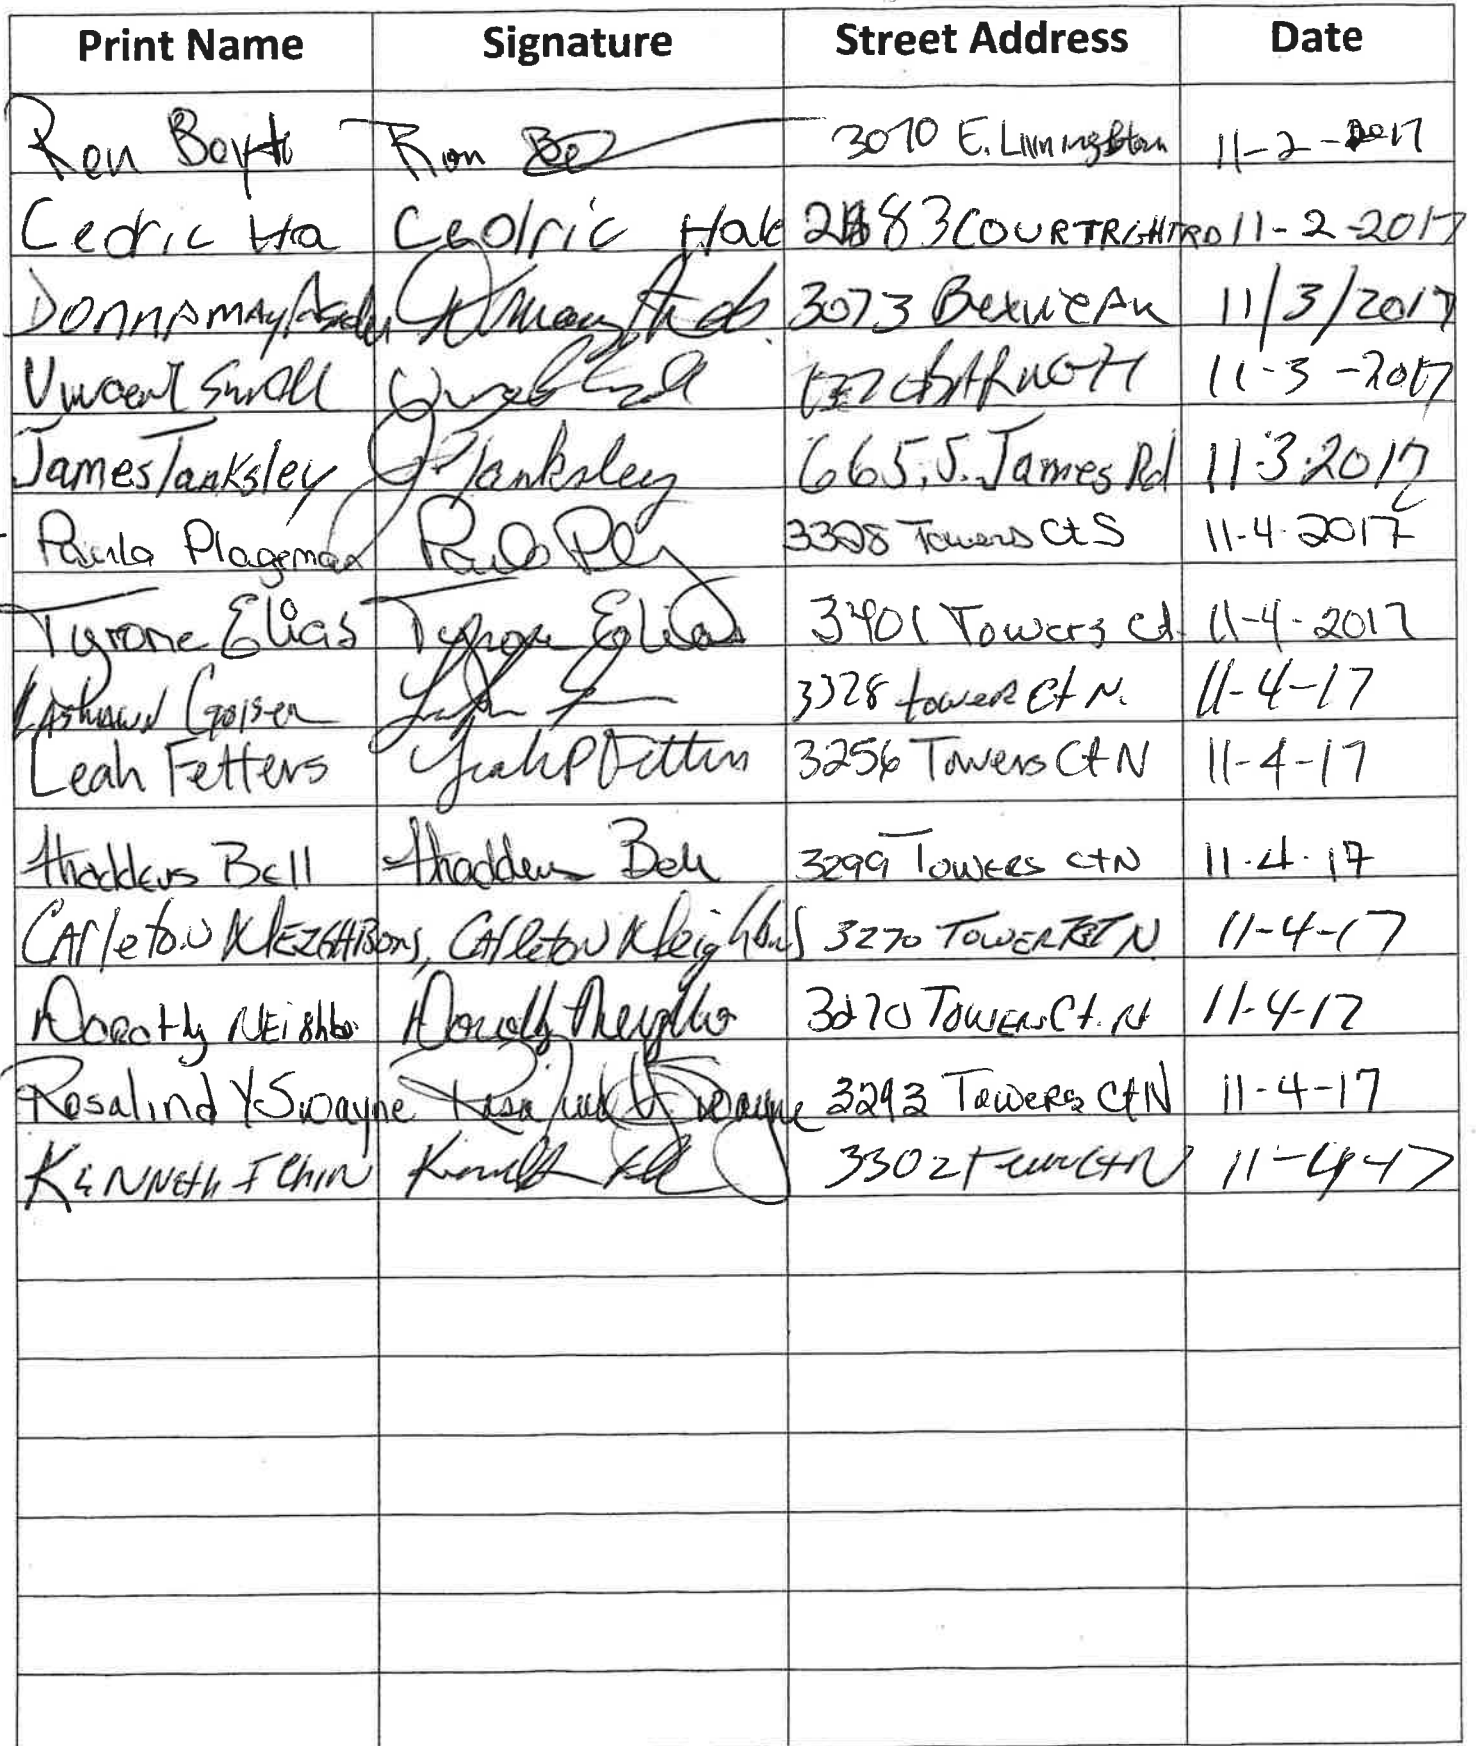 Print Name Signature Street Address Date
Ron Ron 3070 E. 11-2-2017
Cedric Ha Cedric Hale 83 COURTRIGHT RD 11-2-2017
3073 11/3/2017
Vincent Small 11-3-2017
James Tanksley J Tanksley 665 S. James Rd 11.3.2017
Paula Plageman 3328 Towers Ct S 11-4-2017
Tyrone Elias Tyrone Elias 3401 Towers Ct. 11-4-2017
Lashawn 3328 tower Ct N. 11-4-17
Leah Fetters Leah P Fetters 3256 Towers Ct N 11-4-17
thaddeus Bell thaddeus Bell 3299 Towers Ct N 11.4.17
CArleton CArleton 3270 TOWER N 11-4-17
Dorothy NEighbo 3270 Towers Ct. N 11-4-17
Rosalind Y Swayne Rosalind Y Swayne 3293 Towers Ct N 11-4-17
KENNEth 3302 Ct N 11-4-17